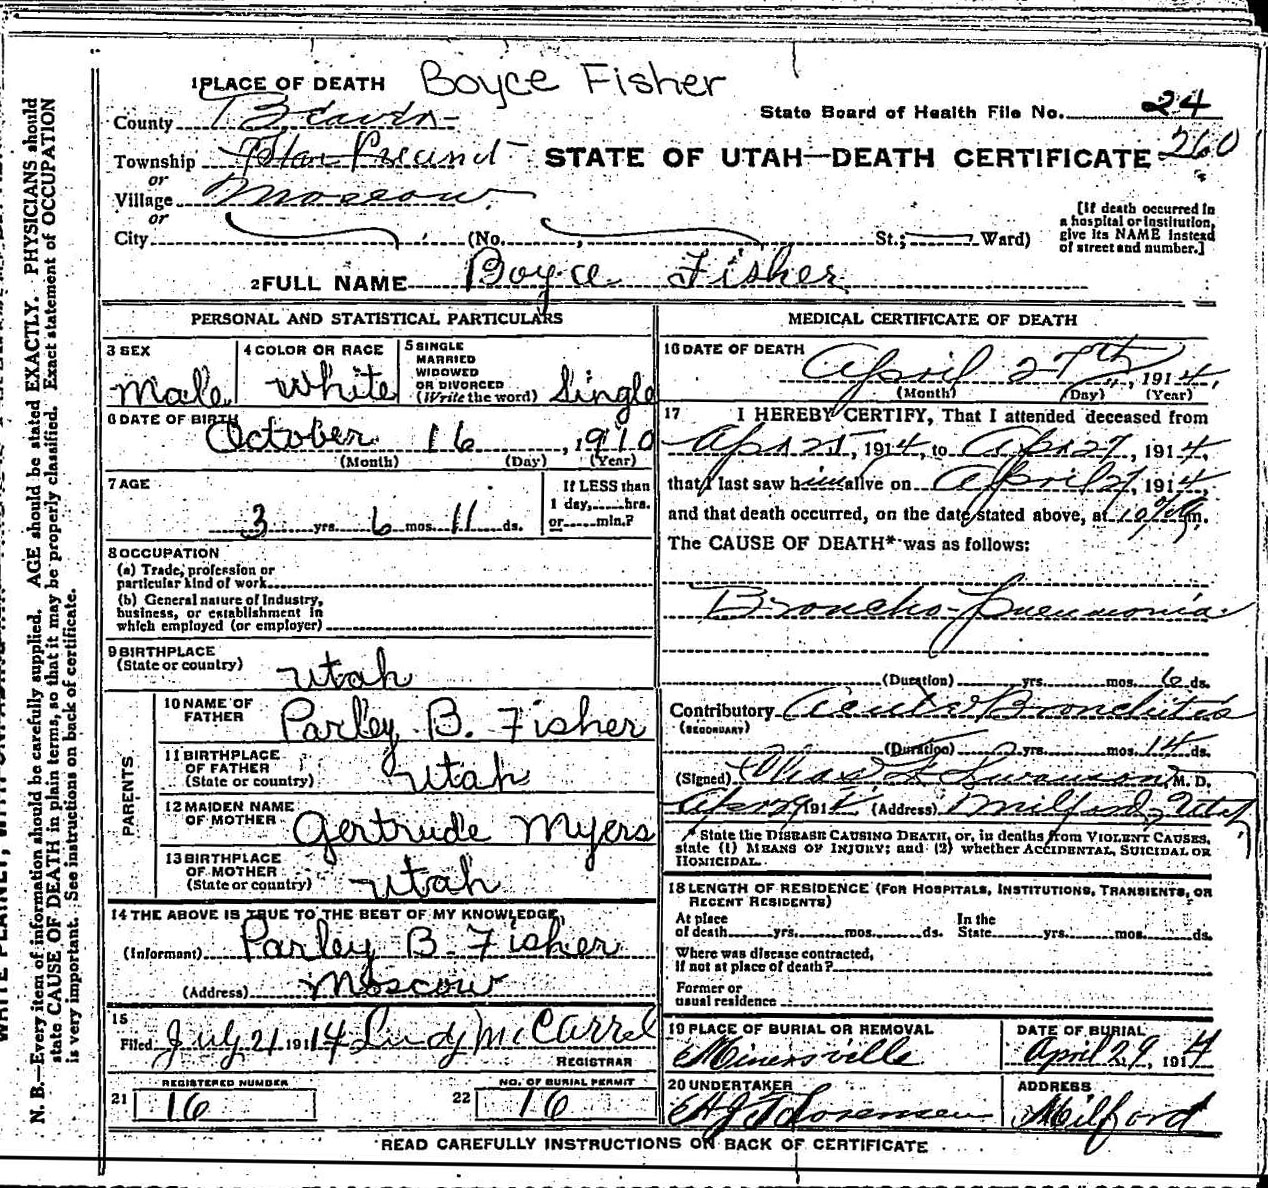 1 PLACE OF DEATH Boyce Fisher
State Board of Health File No. 24
260
County Beaver
Township Star Precinct
or
Village Moscow
or
City (No. St.; Ward)
STATE OF UTAH—DEATH CERTIFICATE
[If death occurred in
a hospital or institution,
give its NAME instead
of street and number.]
2 FULL NAME Boyce Fisher
PERSONAL AND STATISTICAL PARTICULARS
3 SEX
Male
4 COLOR OR RACE
White
5 SINGLE
MARRIED
WIDOWED
OR DIVORCED
(Write the word) Single
6 DATE OF BIRTH
October 16, 1910
(Month) (Day) (Year)
7 AGE
3 yrs. 6 mos. 11 ds.
If LESS than
1 day, hrs.
or min.?
8 OCCUPATION
(a) Trade, profession or
particular kind of work
(b) General nature of Industry,
business, or establishment in
which employed (or employer)
9 BIRTHPLACE
(State or country) Utah
PARENTS
10 NAME OF
FATHER Parley B. Fisher
11 BIRTHPLACE
OF FATHER
(State or country) Utah
12 MAIDEN NAME
OF MOTHER Gertrude Myers
13 BIRTHPLACE
OF MOTHER
(State or country) Utah
14 THE ABOVE IS TRUE TO THE BEST OF MY KNOWLEDGE,
(Informant) Parley B. Fisher
(Address) Moscow
15
Filed July 21 1914 Lindy McCarrel
REGISTRAR
21 REGISTERED NUMBER
16
22 NO. OF BURIAL PERMIT
16
MEDICAL CERTIFICATE OF DEATH
16 DATE OF DEATH
April 27th, 1914,
(Month) (Day) (Year)
17 I HEREBY CERTIFY, That I attended deceased from
Apr 25, 1914, to Apr 27, 1914,
that I last saw him alive on April 27, 1914,
and that death occurred, on the date stated above, at 10 m.
The CAUSE OF DEATH* was as follows:
Broncho-Pneumonia
(Duration) yrs. mos. 6 ds.
Contributory Acute Bronchitis
(SECONDARY)
(Duration) yrs. mos. 14 ds.
(Signed) Swanson, M. D.
Apr 29 191 (Address) Milford, Utah
* State the DISEASE CAUSING DEATH, or, in deaths from VIOLENT CAUSES,
state (1) MEANS OF INJURY; and (2) whether ACCIDENTAL, SUICIDAL OR
HOMICIDAL.
18 LENGTH OF RESIDENCE (FOR HOSPITALS, INSTITUTIONS, TRANSIENTS, OR
RECENT RESIDENTS)
At place
of death yrs. mos. ds.
In the
State yrs. mos. ds.
Where was disease contracted,
if not at place of death?
Former or
usual residence
19 PLACE OF BURIAL OR REMOVAL
Minersville
DATE OF BURIAL
April 29, 1914
20 UNDERTAKER
Sorensen
ADDRESS
Milford
READ CAREFULLY INSTRUCTIONS ON BACK OF CERTIFICATE
N. B.—Every item of information should be carefully supplied. AGE should be stated EXACTLY. PHYSICIANS should
state CAUSE OF DEATH in plain terms, so that it may be properly classified. Exact statement of OCCUPATION
is very important. See instructions on back of certificate.